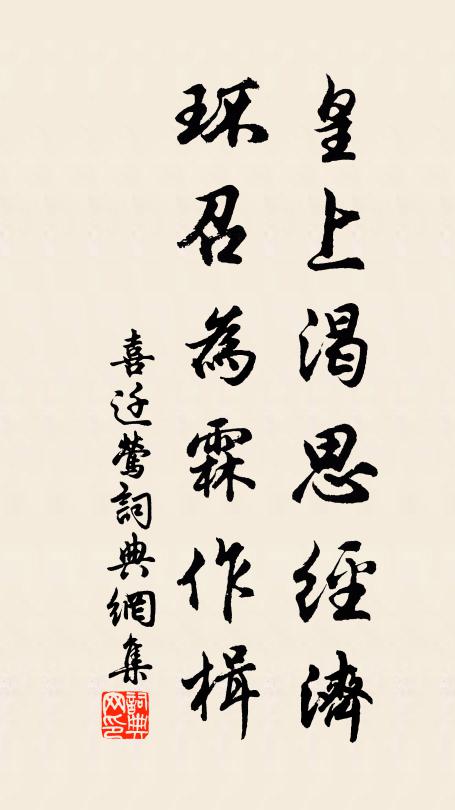 皇上渴思經濟
环召為霖作楫
喜迁鶯詞典網集
詞典网印